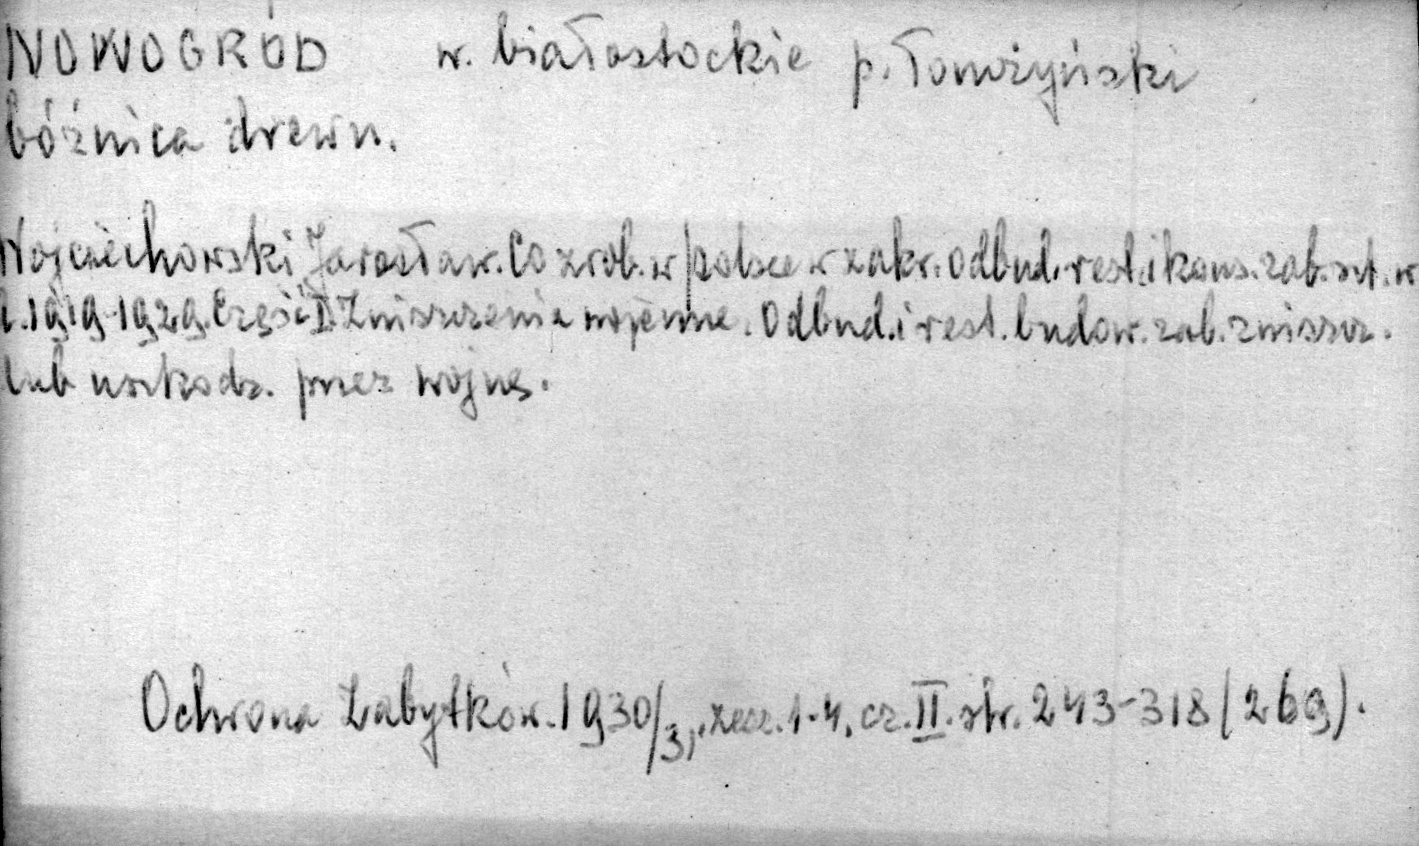 NOWOGRÓD w. białostockie p. łomżyński
bóźnica drewn.
Wojciechowski Jarosław. Co zrob. w polsce w zakr. odbud. rest. i kons. zab. szt. w
l. 1919-1929. Część II. Zniszczenia wojenne. Odbud. i rest. budow. zab. zniszcz.
lub uszkodz. przez wojnę.
Ochrona Zabytków. 1930/31, zesz. 1-4, cz. II. str. 243-318 (269).